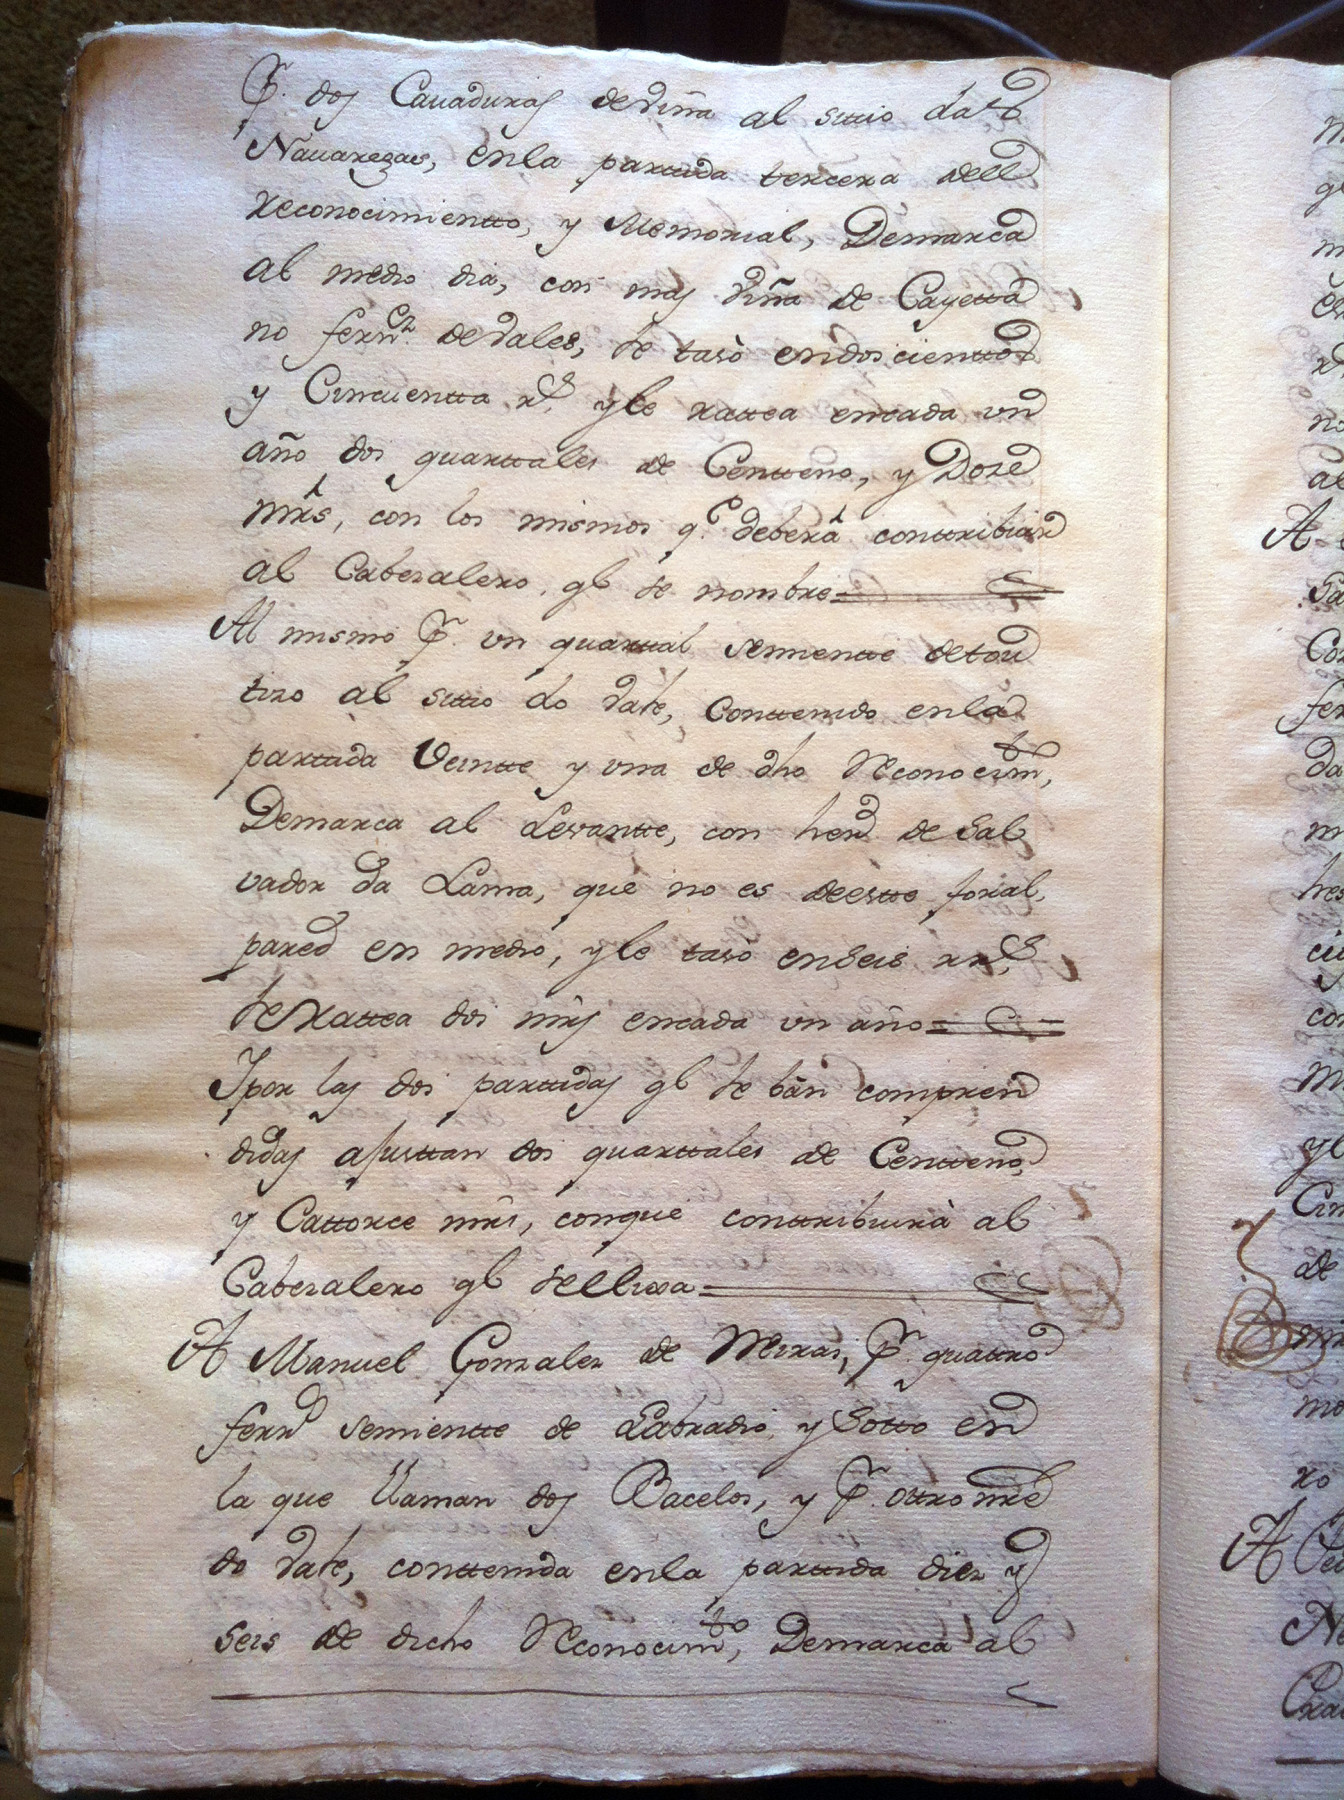 Pr. dos Cauaduras deviña al sitio das
Nauaregas, enla parttida tercera del
reconocimientto, y Memorial, Demarca
al medio dia, con mas viña de Cayetta
no fernz. devales, se tasò endoscienttos
y Cincuentta rs. yle rattea encada un
año dos quarttales de Centteno, y Doze
mrs, con los mismos q. deberà conttribuir
al Cabezalero, qe se nombre
Al mismo Pr. un quarttal semientte detou
tizo al sittio do vale, Conttenido enla
parttida Veintte y una de dho Reconocimto,
Demarca al Levantte, con herd. de Sal
vador da Lama, que no es deestte foral,
pared en medio, yle tasò enseis rrs.
se Rattea dos mrs encada un año
Ipor las dos parttidas qe se bàn compren
didas ajusttan dos quarttales de Centteno,
y Cattorce mrs, conque conttribuirà al
Cabezalero qe sellixa
A Manuel Gonzalez de Meras, Pr. quattro
ferrd. semientte de Labradio, y Sotto en
la que llaman dos Bacelos, y Pr. ottro nre.
do vale, conttenida enla parttida diez y
seis de dicho Reconocimto, Demarca al